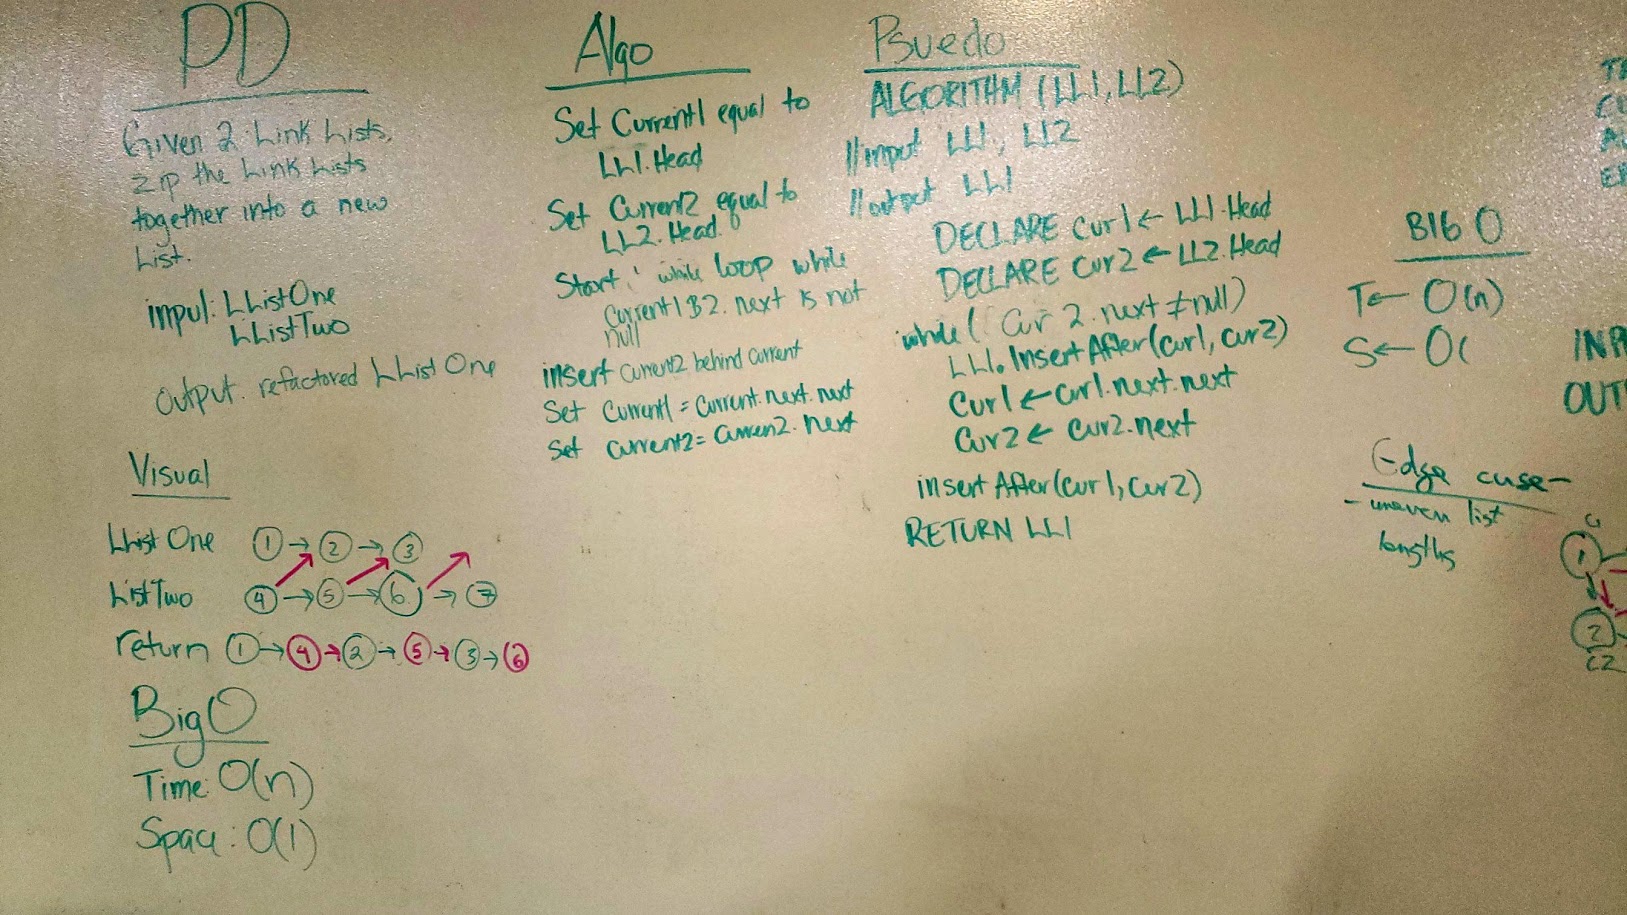 PD
Given 2 Link Lists,
zip the Link Lists
together into a new
List.
input: LListOne
LListTwo
output: refactored LListOne
Visual
LListOne ① → ② → ③
ListTwo ④ → ⑤ → ⑥ → ⑦
return ① → ④ → ② → ⑤ → ③ → ⑥
Big O
Time: O(n)
Space: O(1)
Algo
Set Current1 equal to
LL1.Head
Set Current2 equal to
LL2.Head
Start while loop while
current1 B2.next is not
null
insert current2 behind current
Set Current1 = current.next.next
Set current2 = curren2.next
Psuedo
ALGORITHM (LL1, LL2)
//input LL1, LL2
//output LL1
DECLARE Cur1 ← LL1.Head
DECLARE Cur2 ← LL2.Head
while( Cur2.next ≠ null)
LL1.InsertAfter(cur1, cur2)
Cur1 ← cur1.next.next
Cur2 ← cur2.next
insertAfter(cur1, cur2)
RETURN LL1
BIG O
T ← O(n)
S ← O(
Edge case-
- uneven list
lengths
INP
OUT
1
2
C2